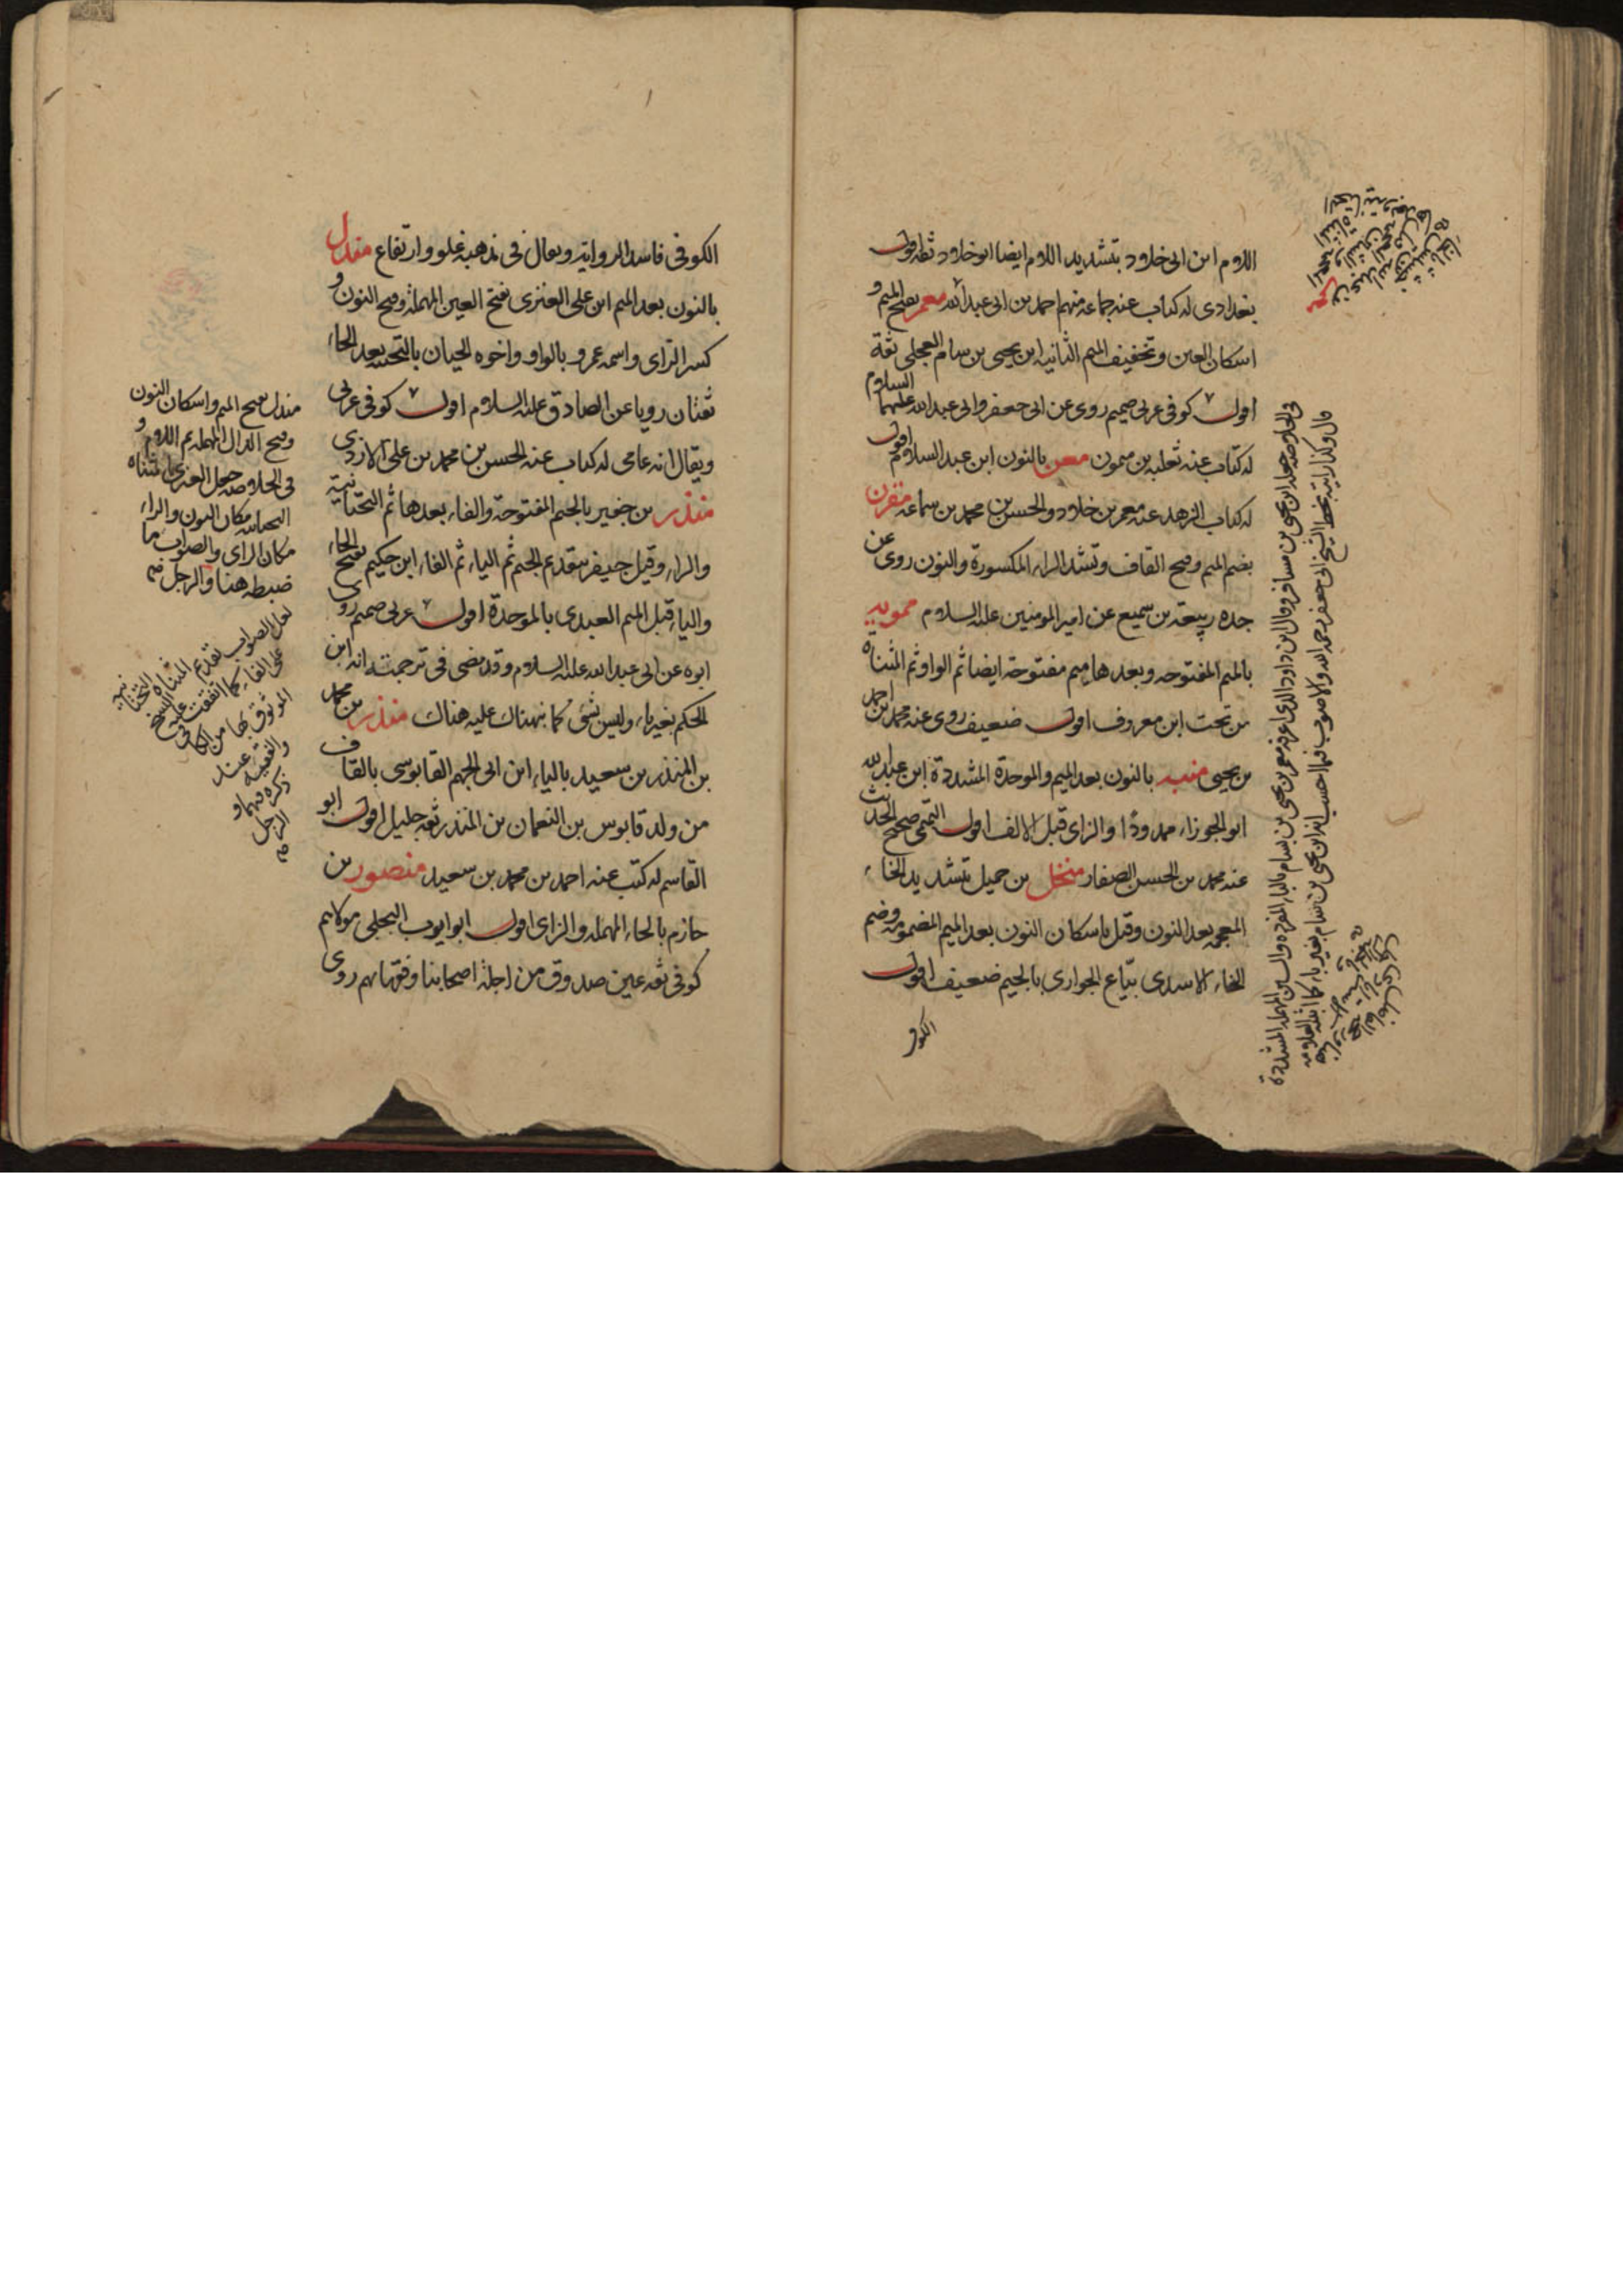 اللام ابن ابى خلاد بتشديد اللام ايضا ابو خلاد ثقة اقول
بغدادى له كتاب عنه جماعة منهم احمد بن ابى عبد الله معمر بفتح الميم و
اسكان العين وتخفيف الميم الثانيه ابن يحيى بن سام العجلى ثقة
اقول كوفى عربى صميم روى عن ابى جعفر وابى عبد الله عليهما السلام
له كتاب عنه ثعلبه بن ميمون معن بالنون ابن عبد السلام اقول
له كتاب الزهد عنه معمر بن خلاد والحسن بن محمد بن سماعه مقرن
بضم الميم وفتح القاف وتشد الراء المكسورة والنون روى عن
جده ربيعة بن سميع عن امير المومنين عليه السلام ممويه
بالميم المفتوحه وبعدها ميم مفتوحة ايضا ثم الواو ثم المثناة
من تحت ابن معروف اقول ضعيف روى عنه محمد بن احمد
بن يحيى منبه بالنون بعد الميم والموحدة المشددة ابن عبد الله
ابو الجوزاء ممدودًا والزاى قبل الالف اقول التميمى صحيح الحديث
عنه محمد بن الحسن الصفار منخل بن جميل بتشديد الخاء
المعجمه بعد النون وقيل باسكان النون بعد الميم المضمومه وضم
الخاء الاسدى بيّاع الجوارى بالجيم ضعيف اقول
الكوفى
فى الخلاصه جعله ابن يحيى بن مسافر وقال ابن داود الذى اعرفه معمر بن يحيى بن بسام بالباء المفرده والسين المهمله المشددة
قال وكذا رايته بخط الشيخ ابى جعفر رحمه الله والاصوب فيما احسب انه ابن يحيى بن سام بغير باء كما اثبته العلامه
الكوفى فاسد الروايه ويقال فى مذهبه غلو وارتفاع مندل
بالنون بعد الميم ابن على العنزى بفتح العين المهملة وفتح النون و
كسر الزاى واسمه عمرو بالواو واخوه الحيان بالتحتيه بعد الحاء
ثقتان رويا عن الصادق عليه السلام اقول كوفى عربى
ويقال انه عامى له كتاب عنه الحسن بن محمد بن على الازدى
منذر بن جفير بالجيم المفتوحة والفاء بعدها ثم التحتانية
والراء وقيل جيفر بتقديم الجيم ثم الياء ثم الفاء ابن حكيم بفتح الحاء
والياء قبل الميم العبدى بالموحدة اقول عربى صميم روى
ابوه عن ابى عبد الله عليه السلام وقد مضى فى ترجمته انه ابن
الحكم بغير ياء وليس بشئ كما نبهناك عليه هناك منذر بن محمد
بن المنذر بن سعيد بالياء ابن ابى الجهم القابوسى بالقاف
من ولد قابوس بن النعمان بن المنذر ثقه جليل اقول ابو
القاسم له كتب عنه احمد بن محمد بن سعيد منصور بن
حازم بالحاء المهمله والزاى اقول ابو ايوب البجلى مولاهم
كوفى ثقه عين صدوق من اجلة اصحابنا وفقهائهم روى
مندل بفتح الميم واسكان النون
وفتح الدال المهمله ثم اللام و
فى الخلاصه جعل العنزى بالمثناه
التحتانيه مكان النون والراء
مكان الزاى والصواب ما
ضبطه هنا والرجل
لعل الصواب تقديم المثناه التحتانيه
على الفاء كما اتفقت عليه النسخ
الموثوق بها من الكافى
والفقيه عند
ذكره فيهما و
الرجل